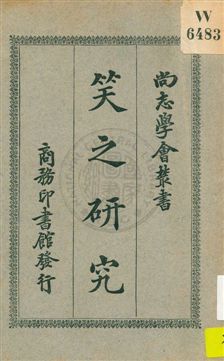 W
6483
尚志學會叢書
笑之研究
商務印書館發行